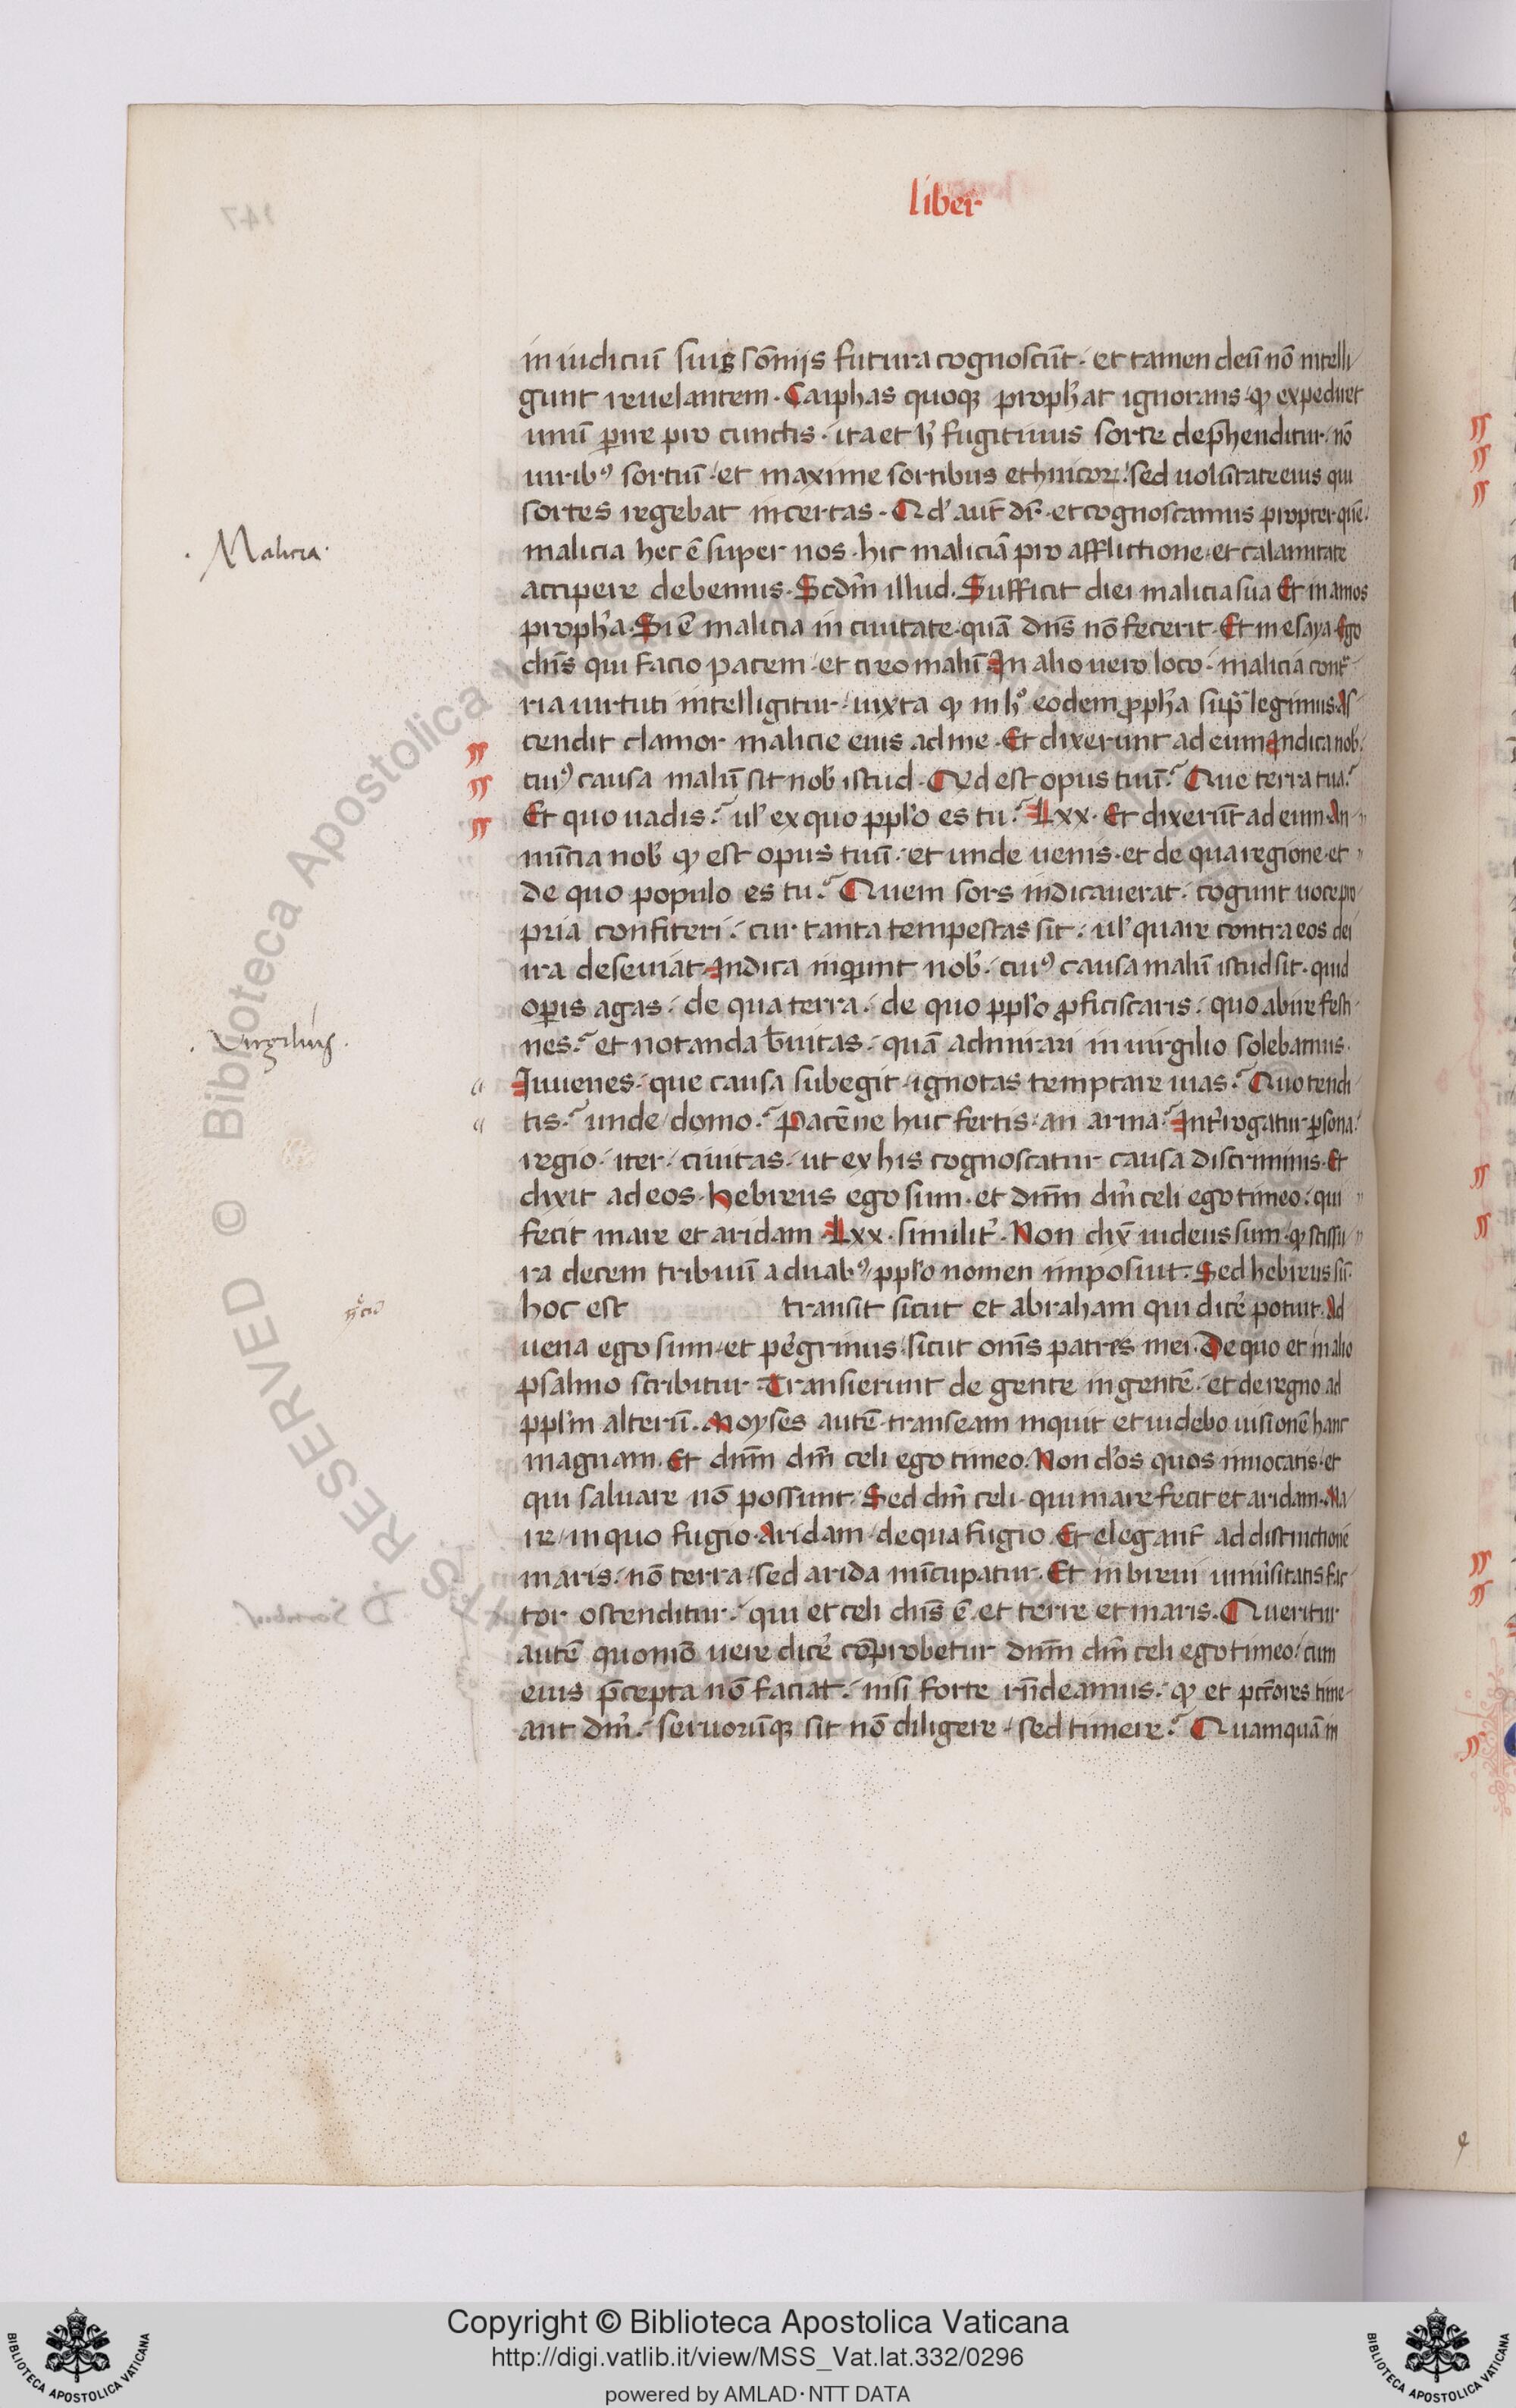 liber
in iudiciũ suis sõmijs futura cognoscũt. et tamen deũ nõ intelli
gunt reuelantem. Caiphas quoqꝫ prophat ignorans. qꝫ expediret
unũ ꝑire pro cunctis. ita et h fugitiuus sorte dep̃henditur. nõ
uiribꝰ sortiũ. et maxime sortibus ethnicoꝝ. sed uolũtate eius qui
sortes regebat incertas. Qd aut̃ dr̃. et cognoscamus propter quẽ
malicia hec ẽ super nos. hic maliciã pro afflictione. et calamitate
accipere debemus. Scdm̃ illud. Sufficit diei malicia sua Et in amos
propha. Si ẽ malicia in ciuitate. quã dñs nõ fecerit. Et in esaya. Ego
dñs qui facio pacem. et creo malũ. In alio uero loco. malicia cont̃
ria uirtuti intelligitur. iuxta qꝫ in hͦ eodem ꝓpha sup̃ legimus. As
cendit clamor malicie eius ad me. Et dixerunt ad eum. Indica nob.
cuiꝰ causa malũ sit nob istud. Qd est opus tuũ? Que terra tua?
Et quo uadis? ul ex quo pplo es tu? Lxx. Et dixerũt ad eum. An
nũcia nob qꝫ est opus tuũ. et unde uenis. et de qua regione. et
de quo populo es tu? Quem sors indicauerat. cogunt uoce pro
pria confiteri. cur tanta tempestas sit. ul quare contra eos dei
ira deseuiat. Indica inquiunt nob. cuiꝰ causa malũ istud sit. quid
oꝑis agas. de qua terra. de quo pplo ꝓficiscaris. quo abire festi
nes? et notanda b̃uitas. quã admirari in uirgilio solebamus.
Iuuenes. que causa subegit. ignotas temptare uias? Quo tendi
tis? unde domo? Pacẽne huc fertis. an arma? Int̃rogatur ꝑsona.
regio. iter. ciuitas. ut ex his cognoscatur causa discriminis. Et
dixit ad eos. Hebreus ego sum. et dnm̃ dm̃ celi ego timeo. qui
fecit mare et aridam. Lxx. similit̃. Non dix̃ iudeus sum. qꝫ scissu
ra decem tribuũ a duabꝰ pplo nomen imposuit. Sed hebreus sũ.
hoc est transit sicut et abraham qui dicẽ potuit. Ad
uena ego sum. et peg̃rinus. sicut om̃s patres mei. De quo et in alio
psalmo scribitur. Transierunt de gente in gentẽ. et de regno ad
pplm alterũ. Moyses autẽ. transeam inquit et uidebo uisionẽ hanc
magnam. Et dnm̃ dm̃ celi ego timeo. Non dos quos inuocatis. et
qui saluare nõ possunt. Sed dm̃ celi. qui mare fecit et aridam. Ma
re. in quo fugio. Aridam. de qua fugio. Et elegant̃ ad distinctionẽ
maris. nõ terra. sed arida nũcupatur. Et in breui uniũsitatis fac
tor ostenditur. qui et celi dñs ẽ. et terre et maris. Queritur
autẽ quomõ uere dicẽ cõprobetur dnm̃ dm̃ celi ego timeo. cum
eius p̃cepta nõ faciat. nisi forte rñdeamus. qꝫ et pctõres time
ant dm̃. seruorũqꝫ sit nõ diligere. sed timere? Quamquã in
Malicia.
Virgilius.
147
Biblioteca Apostolica Vaticana
ALL RIGHTS RESERVED ©
Copyright © Biblioteca Apostolica Vaticana
http://digi.vatlib.it/view/MSS_Vat.lat.332/0296
powered by AMLAD·NTT DATA
BIBLIOTECA APOSTOLICA VATICANA
BIBLIOTECA APOSTOLICA VATICANA